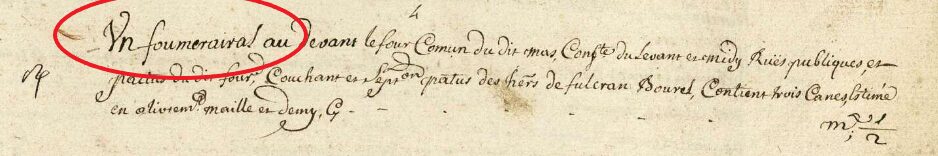 4
Un foumerairal au devant le four Comun du dit mas, Confte du Levant et midy Rües publiques, et
patus du dit four, Couchant et Septon patus des hers de fulcran Bourel, Contient trois Canes Estimé
en alivremt maille et demy, Cy - - - -
m 1/2